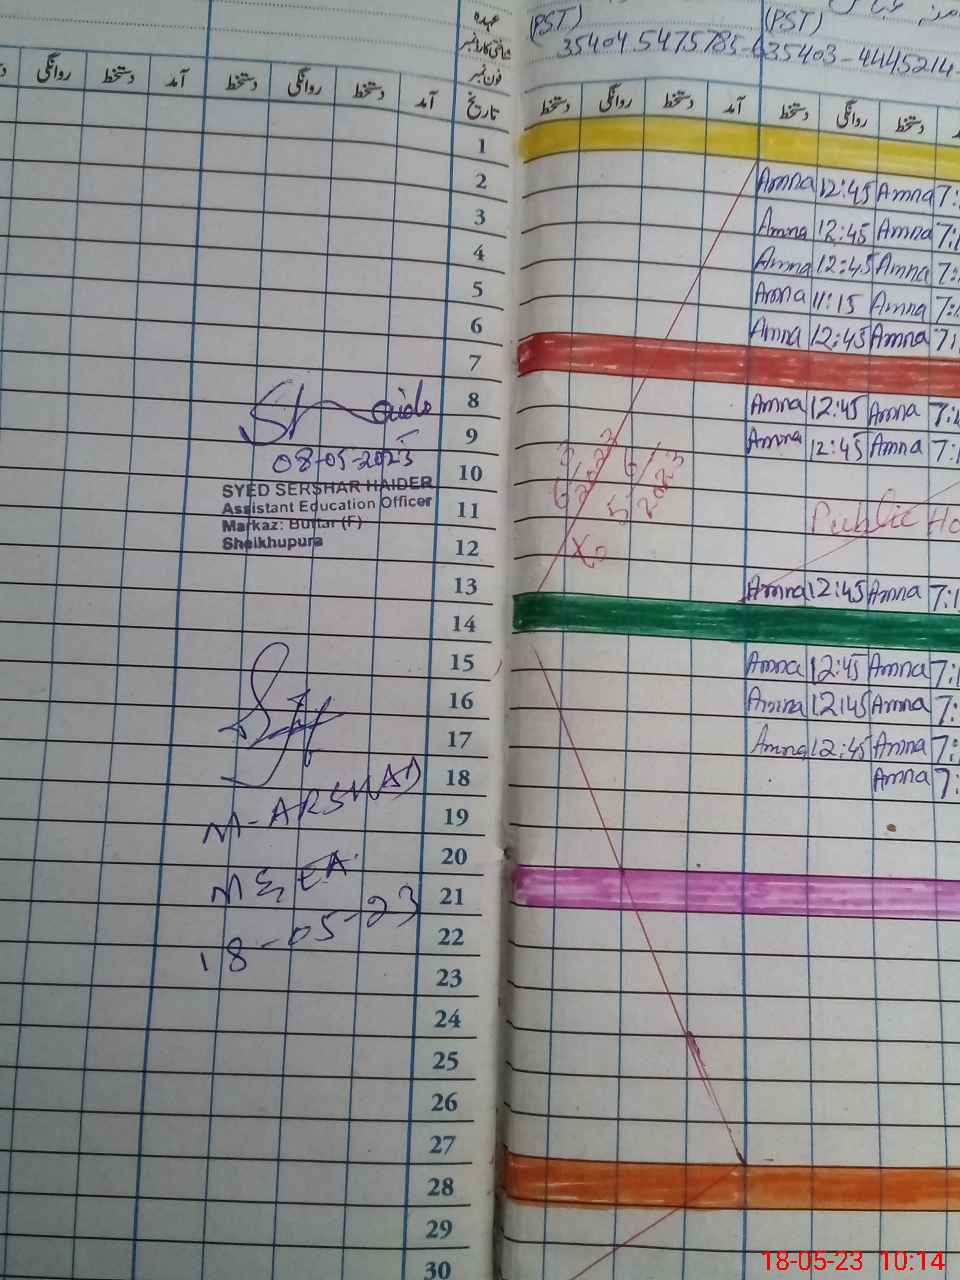 عہدہ
شناختی کارڈ نمبر
فون نمبر
(PST) (PST)
35404 5475785-6 35403-4445214-
روانگی دستخط آمد دستخط روانگی دستخط آمد تاریخ دستخط روانگی دستخط آمد دستخط روانگی دستخط
1
2 Amna 12:45 Amna 7:
3 Amna 12:45 Amna 7:
4 Amna 12:45 Amna 7:
5 Amna 11:15 Amna 7:
6 Amna 12:45 Amna 7:
7
8 Amna 12:45 Amna 7:
9 Amna 12:45 Amna 7:
10
11 Public Ho
12
13 Amna 12:45 Amna 7:1
14
15 Amna 12:45 Amna 7:
16 Amna 12:45 Amna 7:
17 Amna 12:45 Amna 7:
18 Amna 7:
19
20
21
22
23
24
25
26
27
28
29
30
08-05-2023
SYED SERSHAR HAIDER
Assistant Education Officer
Markaz: Buttar (F)
Sheikhupura
M-ARSHAD
MEEA
18-05-23
18-05-23 10:14